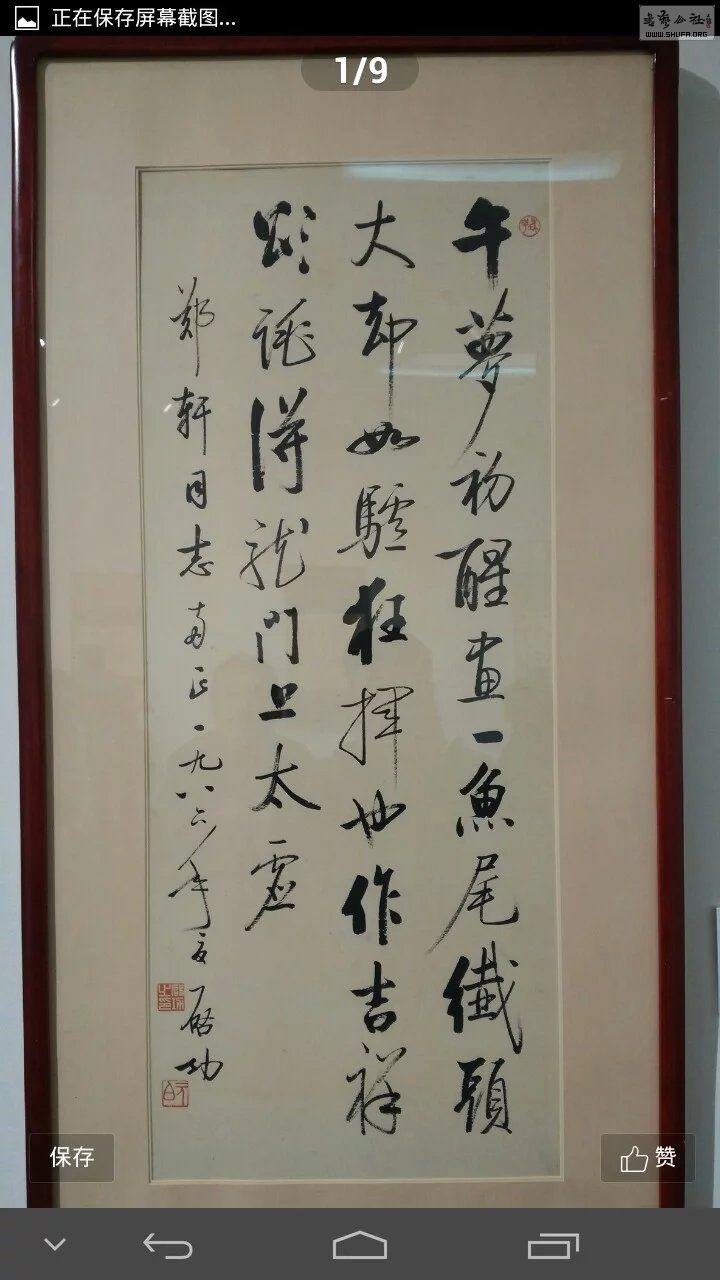 正在保存屏幕截图...
书艺公社
WWW.SHUFA.ORG
1/9
午夢初醒畫一魚尾纖頭
大却如驢狂揮也作吉祥
得龍門上太虛
鄭軒同志 正一九八六年夏 啟功
保存
赞